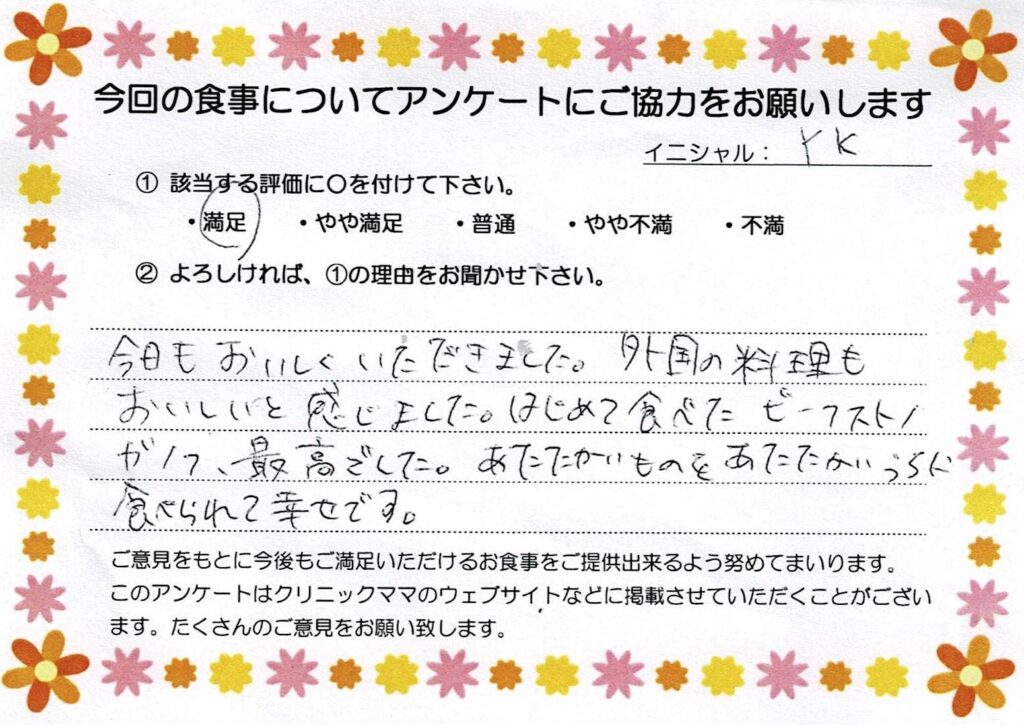 今回の食事についてアンケートにご協力をお願いします
イニシャル： YK
① 該当する評価に〇を付けて下さい。
・満足 ・やや満足 ・普通 ・やや不満 ・不満
② よろしければ、①の理由をお聞かせ下さい。
今日もおいしくいただきました。外国の料理も
おいしいと感じました。はじめて食べたビーフストロ
ガノフ、最高でした。あたたかいものをあたたかいうちに
食べられて幸せです。
ご意見をもとに今後もご満足いただけるお食事をご提供出来るよう努めてまいります。
このアンケートはクリニックママのウェブサイトなどに掲載させていただくことがござい
ます。たくさんのご意見をお願い致します。